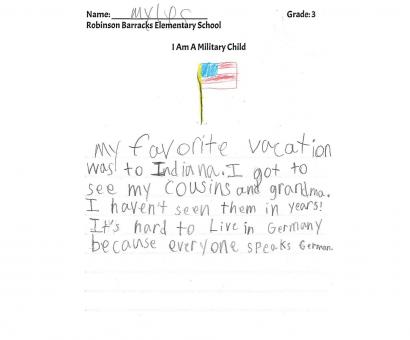 Name: Myles
Grade: 3
Robinson Barracks Elementary School
I Am A Military Child
my favorite vacation
was to Indiana. I got to
see my cousins and grandma.
I haven't seen them in years!
It's hard to Live in Germany
because everyone speaks German.